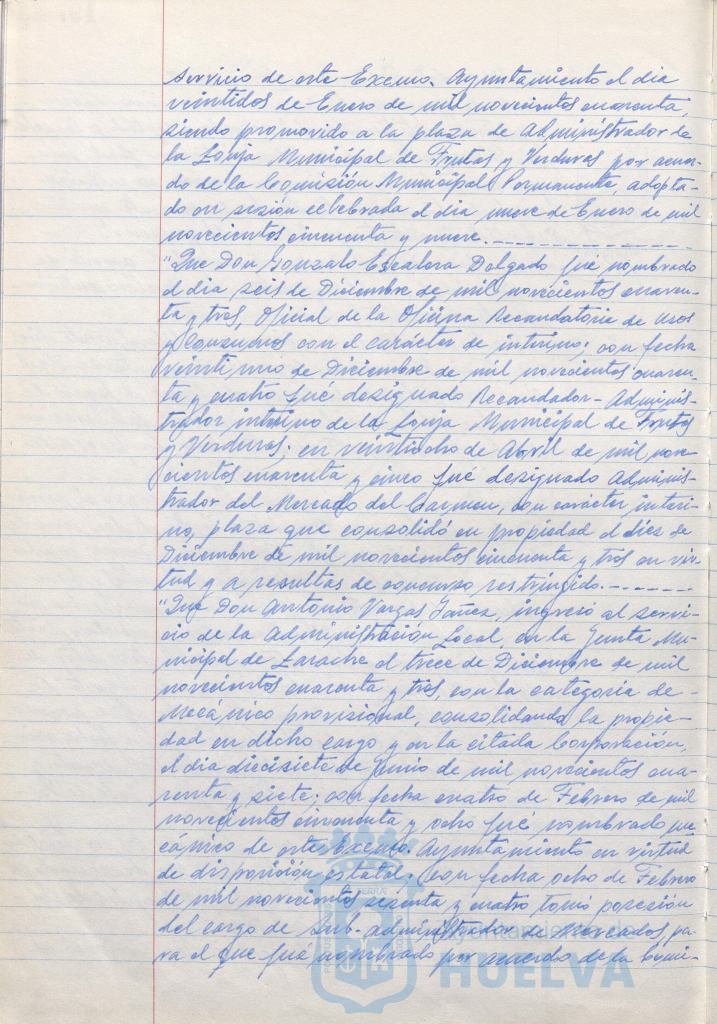 servicio de este Excmo. Ayuntamiento el día
veintidos de Enero de mil novecientos cuarenta,
siendo promovido a la plaza de Administrador de
la Lonja Municipal de Frutas y Verduras por acuer-
do de la Comisión Municipal Permanente, adopta-
do en sesión celebrada el día nueve de Enero de mil
novecientos cincuenta y nueve.
"Que Don Gonzalo Escalera Delgado fué nombrado
el día seis de Diciembre de mil novecientos cuaren-
ta y tres, Oficial de la Oficina Recaudatoria de Usos
y Consumos con el carácter de interino; con fecha
veintiuno de Diciembre de mil novecientos cuaren-
ta y cuatro fué designado Recaudador-Adminis-
trador interino de la Lonja Municipal de Frutas
y Verduras; en veintiocho de Abril de mil nove-
cientos cuarenta y cinco fué designado Adminis-
trador del Mercado del Carmen, con carácter interi-
no, plaza que consolidó en propiedad el diez de
Diciembre de mil novecientos cincuenta y tres en vir-
tud y a resultas de concurso restringido.
"Que Don Antonio Vargas Yañez, ingresó al servi-
cio de la Administración Local, en la Junta Mu-
nicipal de Larache el trece de Diciembre de mil
novecientos cuarenta y tres, con la categoría de
Mecánico provisional, consolidando la propie-
dad en dicho cargo y en la citada Corporación,
el día diecisiete de Junio de mil novecientos cua-
renta y siete; con fecha cuatro de Febrero de mil
novecientos cincuenta y ocho fué nombrado me-
cánico de este Excmo. Ayuntamiento en virtud
de disposición estatal; con fecha ocho de Febrero
de mil novecientos sesenta y cuatro tomó posesión
del cargo de Sub-administrador de Mercados pa-
ra el que fué nombrado por acuerdo de la Comi-
Ayuntamiento de
HUELVA